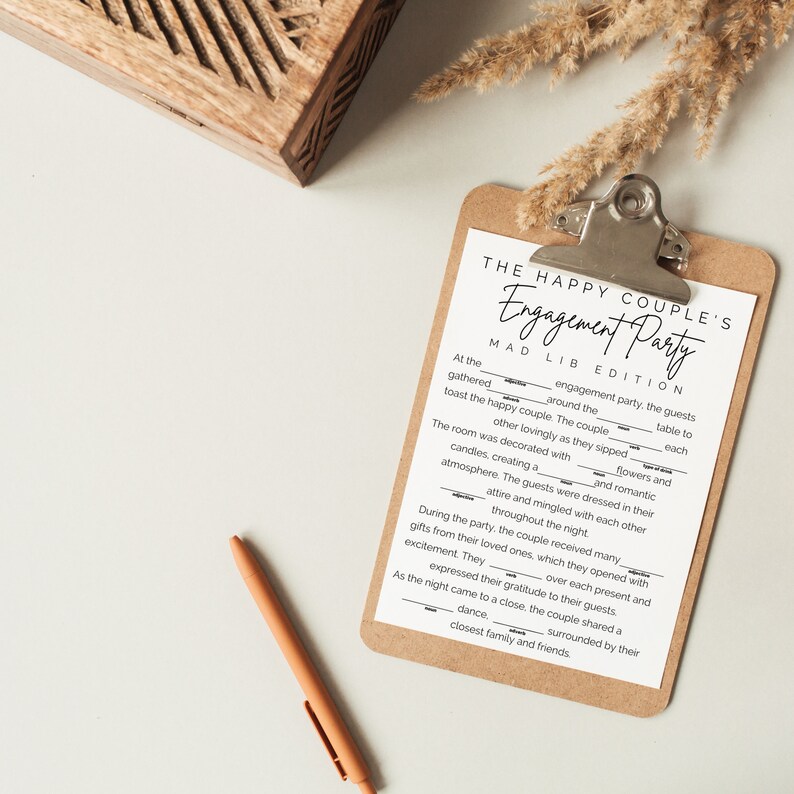 THE HAPPY COUPLE'S
Engagement Party
MAD LIB EDITION
At the ____________ engagement party, the guests
adjective
gathered __________ around the __________ table to
adverb noun
toast the happy couple. The couple __________ each
verb
other lovingly as they sipped __________
type of drink
The room was decorated with ________ flowers and
noun
candles, creating a __________ and romantic
noun
atmosphere. The guests were dressed in their
________ attire and mingled with each other
adjective
throughout the night.
During the party, the couple received many ________
adjective
gifts from their loved ones, which they opened with
excitement. They _________ over each present and
verb
expressed their gratitude to their guests.
As the night came to a close, the couple shared a
_________ dance, _________ surrounded by their
noun adverb
closest family and friends.